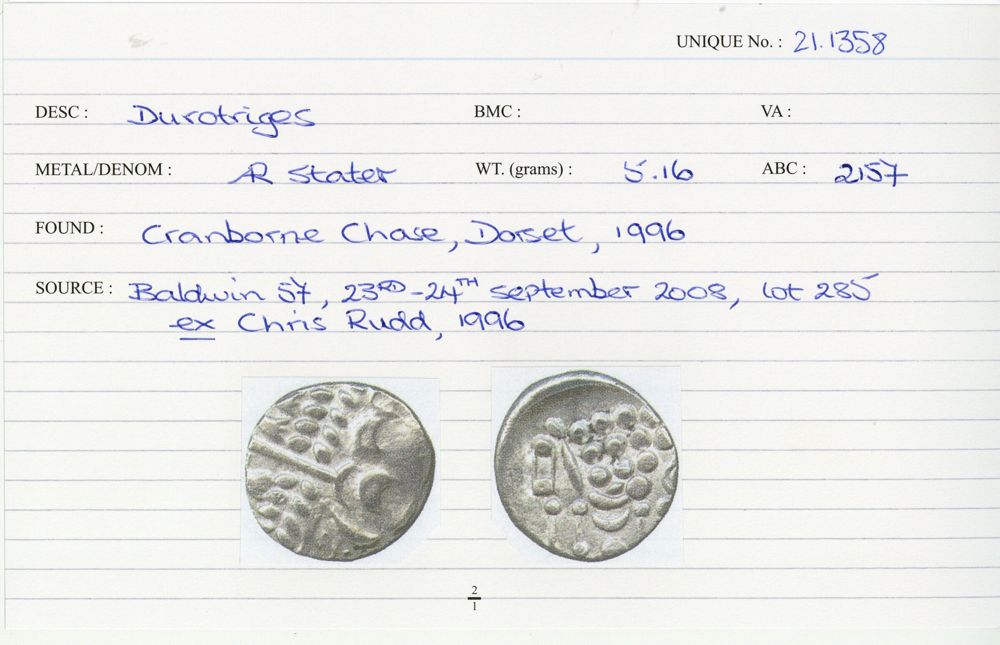 UNIQUE No. : 21.1358
DESC : Durotriges BMC : VA :
METAL/DENOM : AR Stater WT. (grams) : 5.16 ABC : 2157
FOUND : Cranborne Chase, Dorset, 1996
SOURCE : Baldwin 57, 23RD-24TH September 2008, lot 285
ex Chris Rudd, 1996
2
1